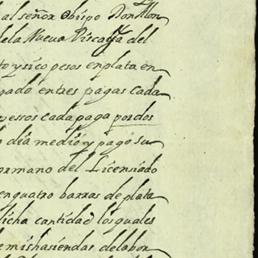 al señor obispo Don Alon
dela Nueva Viscaya del
to y sico pesos en plata en
gado entres pagas cada
pessos cada paga por dos
dia medio y pago su
ermano del Licensiado
en quatro barras de plata
dicha cantidad los quales
e mis hasiendas de labor